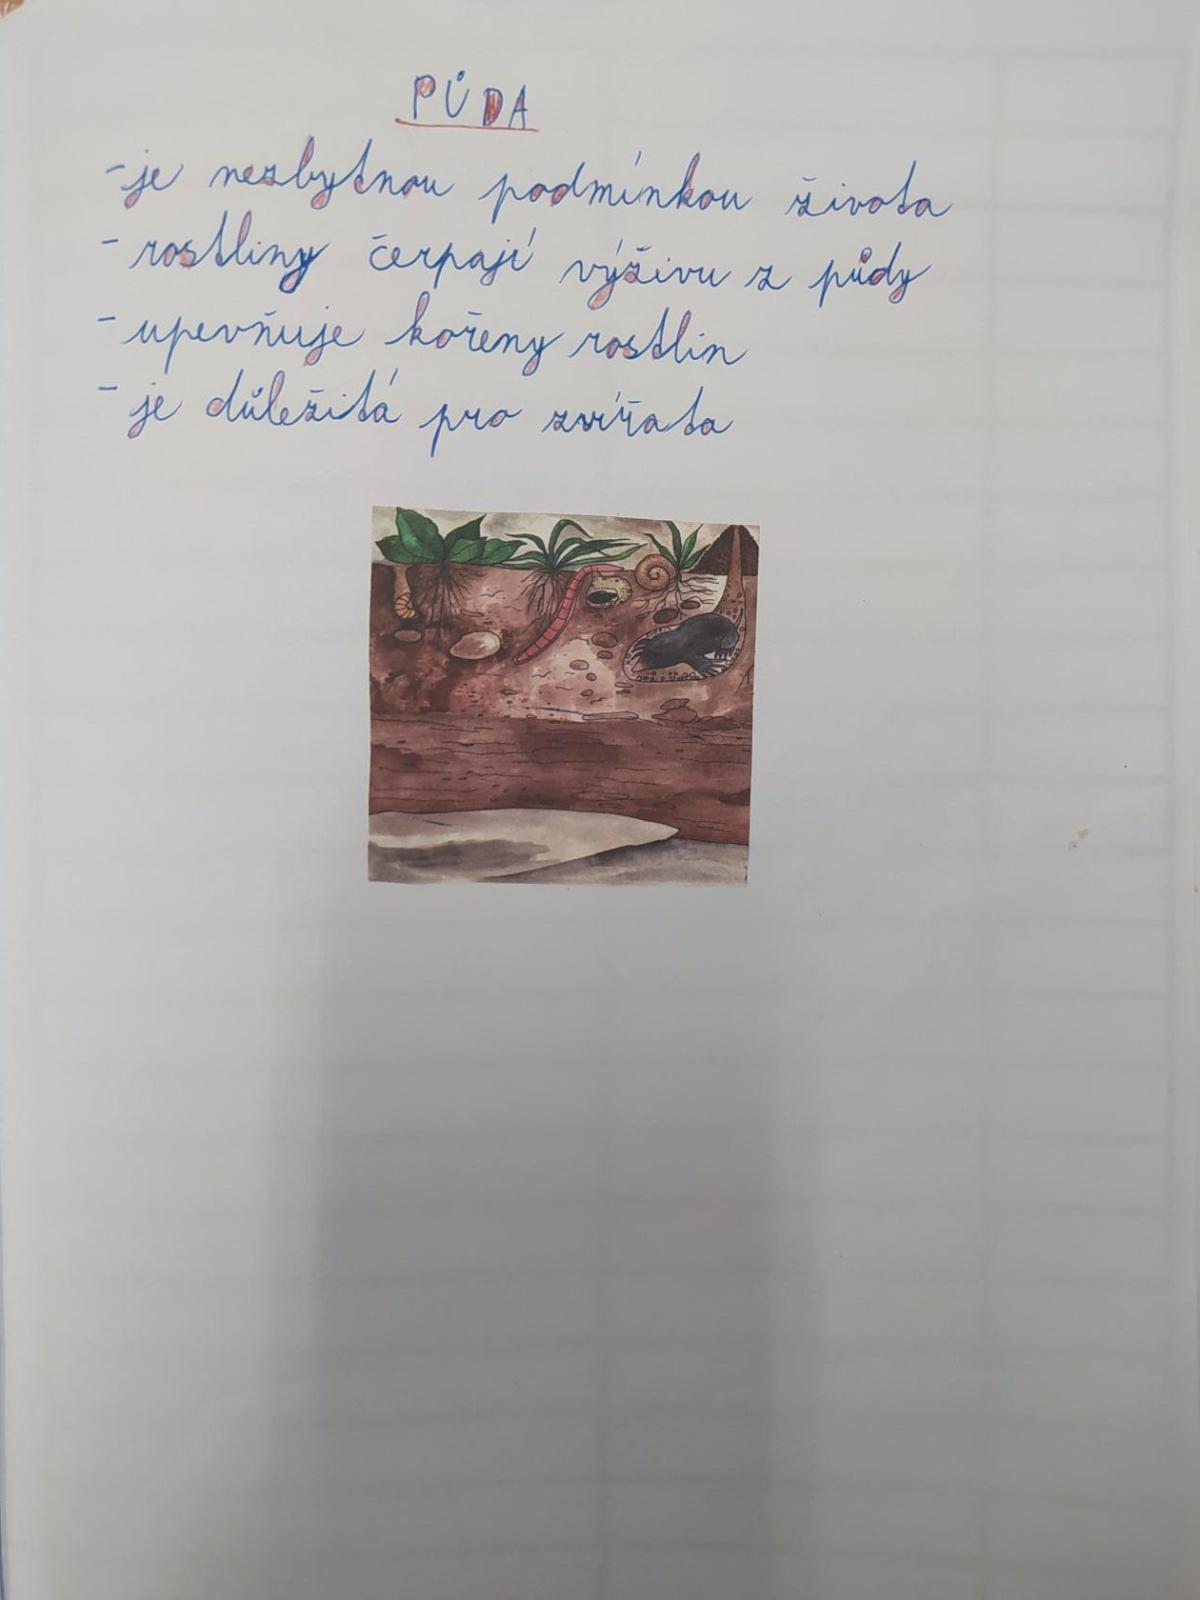 PŮDA
- je nezbytnou podmínkou života
- rostliny čerpají výživu z půdy
- upevňuje kořeny rostlin
- je důležitá pro zvířata